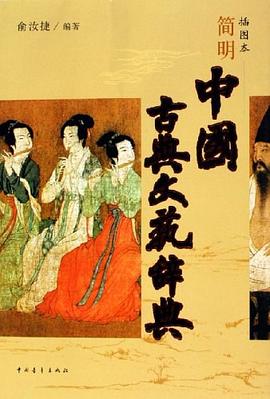 插图本
简明
中國
古典文藝辞典
俞汝捷／编著
中国青年出版社